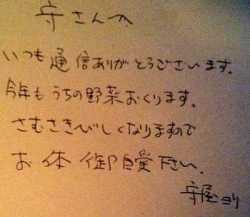 守さんへ
いつも通信ありがとうございます。
今年もうちの野菜おくります。
さむさきびしくなりますので
お体御自愛下さい、
守屋より